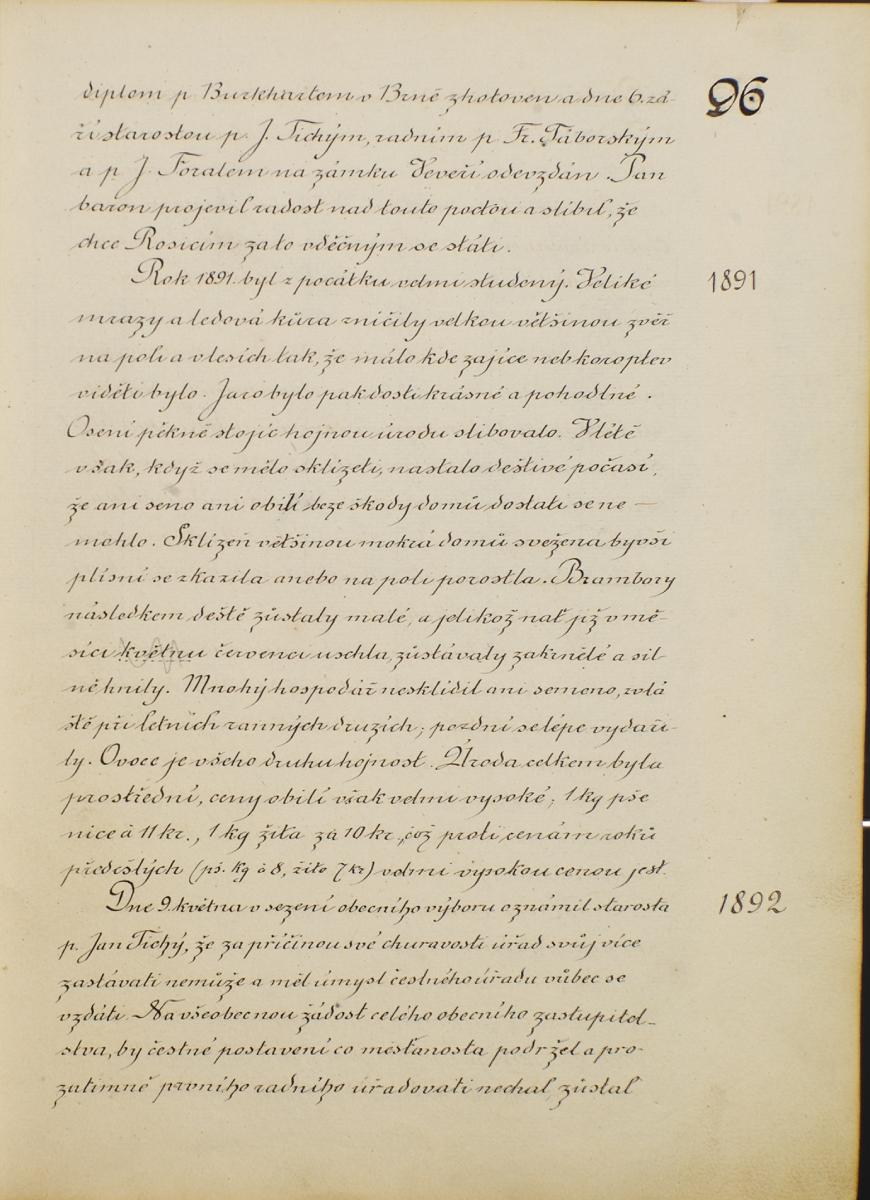 96
diplom p Burkhartem v Brně zhotoven a dne 6. zá-
ří starostou p. J. Tichým, radním p Fr. Táborským
a p J. Foralem na zámku Veveří odevzdán. Pan
baron projevil radost nad touto poctou a slíbil, že
chce Rosicím za to vděčným se státi.
Rok 1891. byl z počátku velmi studený. Veliké
1891
mrazy a ledová kůra zničily velkou většinou zvěř
na poli a v lesích tak, že málo kde zajíce neb koroptev
viděti bylo. Jaro bylo pak dosti krásné a pohodlné.
Osení pěkně stojíc hojnou úrodu slibovalo. V létě
však, když se mělo sklízeti, nastalo deštivé počasí,
že ani seno ani obilí beze škody domů dostati se ne—
mohlo. Sklizeň většinou mokrá domů svežena byvši
plísní se zkazila anebo na poli porostla. Brambory
následkem deště zůstaly malé, a jelikož nať již v mě-
síci květnu červenci uschla, zůstávaly zakrnělé a sil-
ně hnily. Mnohý hospodář nesklidil ani semeno, zvlá
ště při letních ranných druzích; pozdní se lépe vydaři-
ly. Ovoce je všeho druhu hojnost. Úroda celkem byla
prostřední, ceny obilí však velmi vysoké; 1 kg pše
nice à 11 kr., 1 kg žita za 10 kr., což proti cenám roků
předešlých (pš. kg à 8, žito 7 kr) velmi vysokou cenou jest.
Dne 9. května v sezení obecního výboru oznámil starosta
1892
p. Jan Tichý, že za příčinou své churavosti úřad svůj více
zastávati nemůže a měl úmysl čestného úřadu vůbec se
vzdáti. Na všeobecnou žádost celého obecního zastupitel-
stva, by čestné postavení co měšťanosta podržel a pro-
zatimně prvního radního úřadovati nechal, zůstal